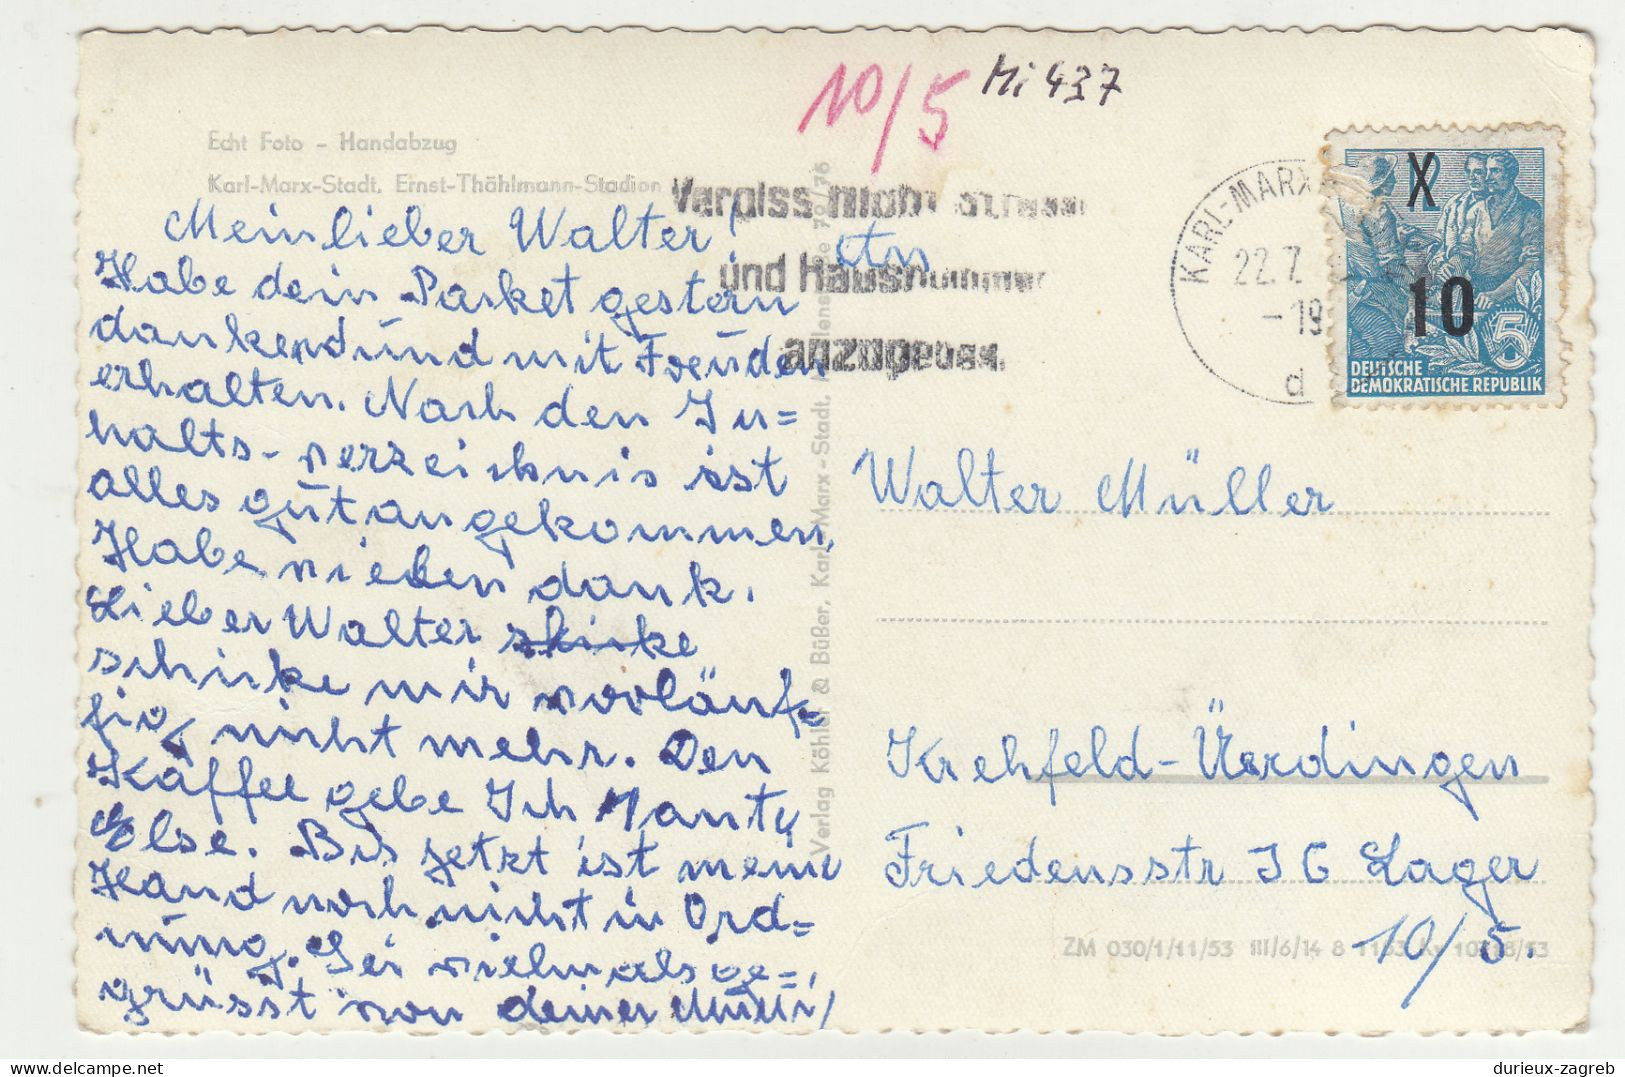 10/5
Mi 437
Echt Foto – Handabzug
Karl-Marx-Stadt, Ernst-Thählmann-Stadion
Vergiss nicht Strasse
und Hausnummer
anzugeben.
KARL-MARX
22.7.
-19
d
X 12
10
5
DEUTSCHE
DEMOKRATISCHE REPUBLIK
Mein lieber Walter!
Habe dein Parket gestern
dankend und mit Freuden
erhalten. Nach den In=
halts-verzeichnis ist
alles gut angekommen,
Habe vielen dank.
Lieber Walter
schicke mir vorläuf=
fig nicht mehr. Den
Kaffee gebe Ich Manty
Else. Bis jetzt ist meine
Hand noch nicht in Ord=
nung. Sei vielmals ge=
grüsst von deiner Mutti/
An
Verlag Köhler & Büßer, Karl-Marx-Stadt,
Walter Müller
Krehfeld-Üerdingen
Friedensstr I G Lager
10/5.
ZM 030/1/11/53 III/6/14 8
durieux-zagreb